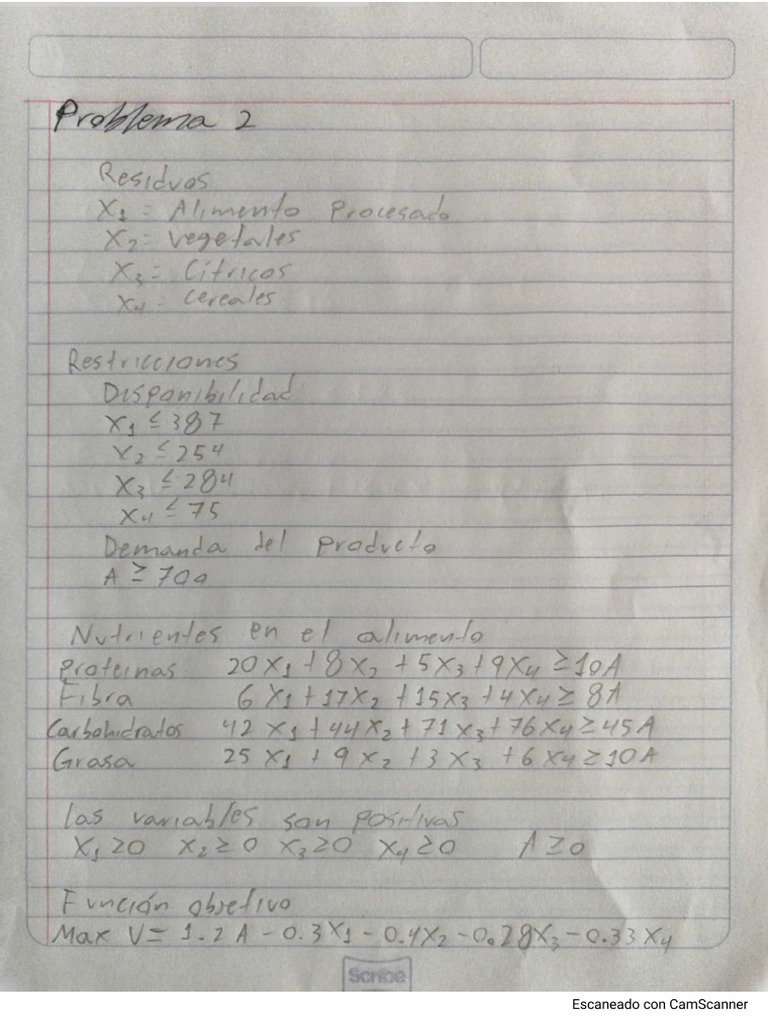 Problema 2
Residuos
X1 = Alimento Procesado
X2 = vegetales
X3 = Cítricos
X4 = cereales
Restricciones
Disponibilidad
X1 ≤ 387
X2 ≤ 254
X3 ≤ 284
X4 ≤ 75
Demanda del producto
A ≥ 700
Nutrientes en el alimento
proteinas 20X1 + 8X2 + 5X3 + 9X4 ≥ 10A
Fibra 6X1 + 17X2 + 15X3 + 4X4 ≥ 8A
Carbohidratos 42X1 + 44X2 + 71X3 + 76X4 ≥ 45A
Grasa 25X1 + 9X2 + 3X3 + 6X4 ≥ 10A
las variables son positivas
X1 ≥ 0 X2 ≥ 0 X3 ≥ 0 X4 ≥ 0 A ≥ 0
Función objetivo
Max V = 1.2A - 0.3X1 - 0.4X2 - 0.28X3 - 0.33X4
Scribe
Escaneado con CamScanner